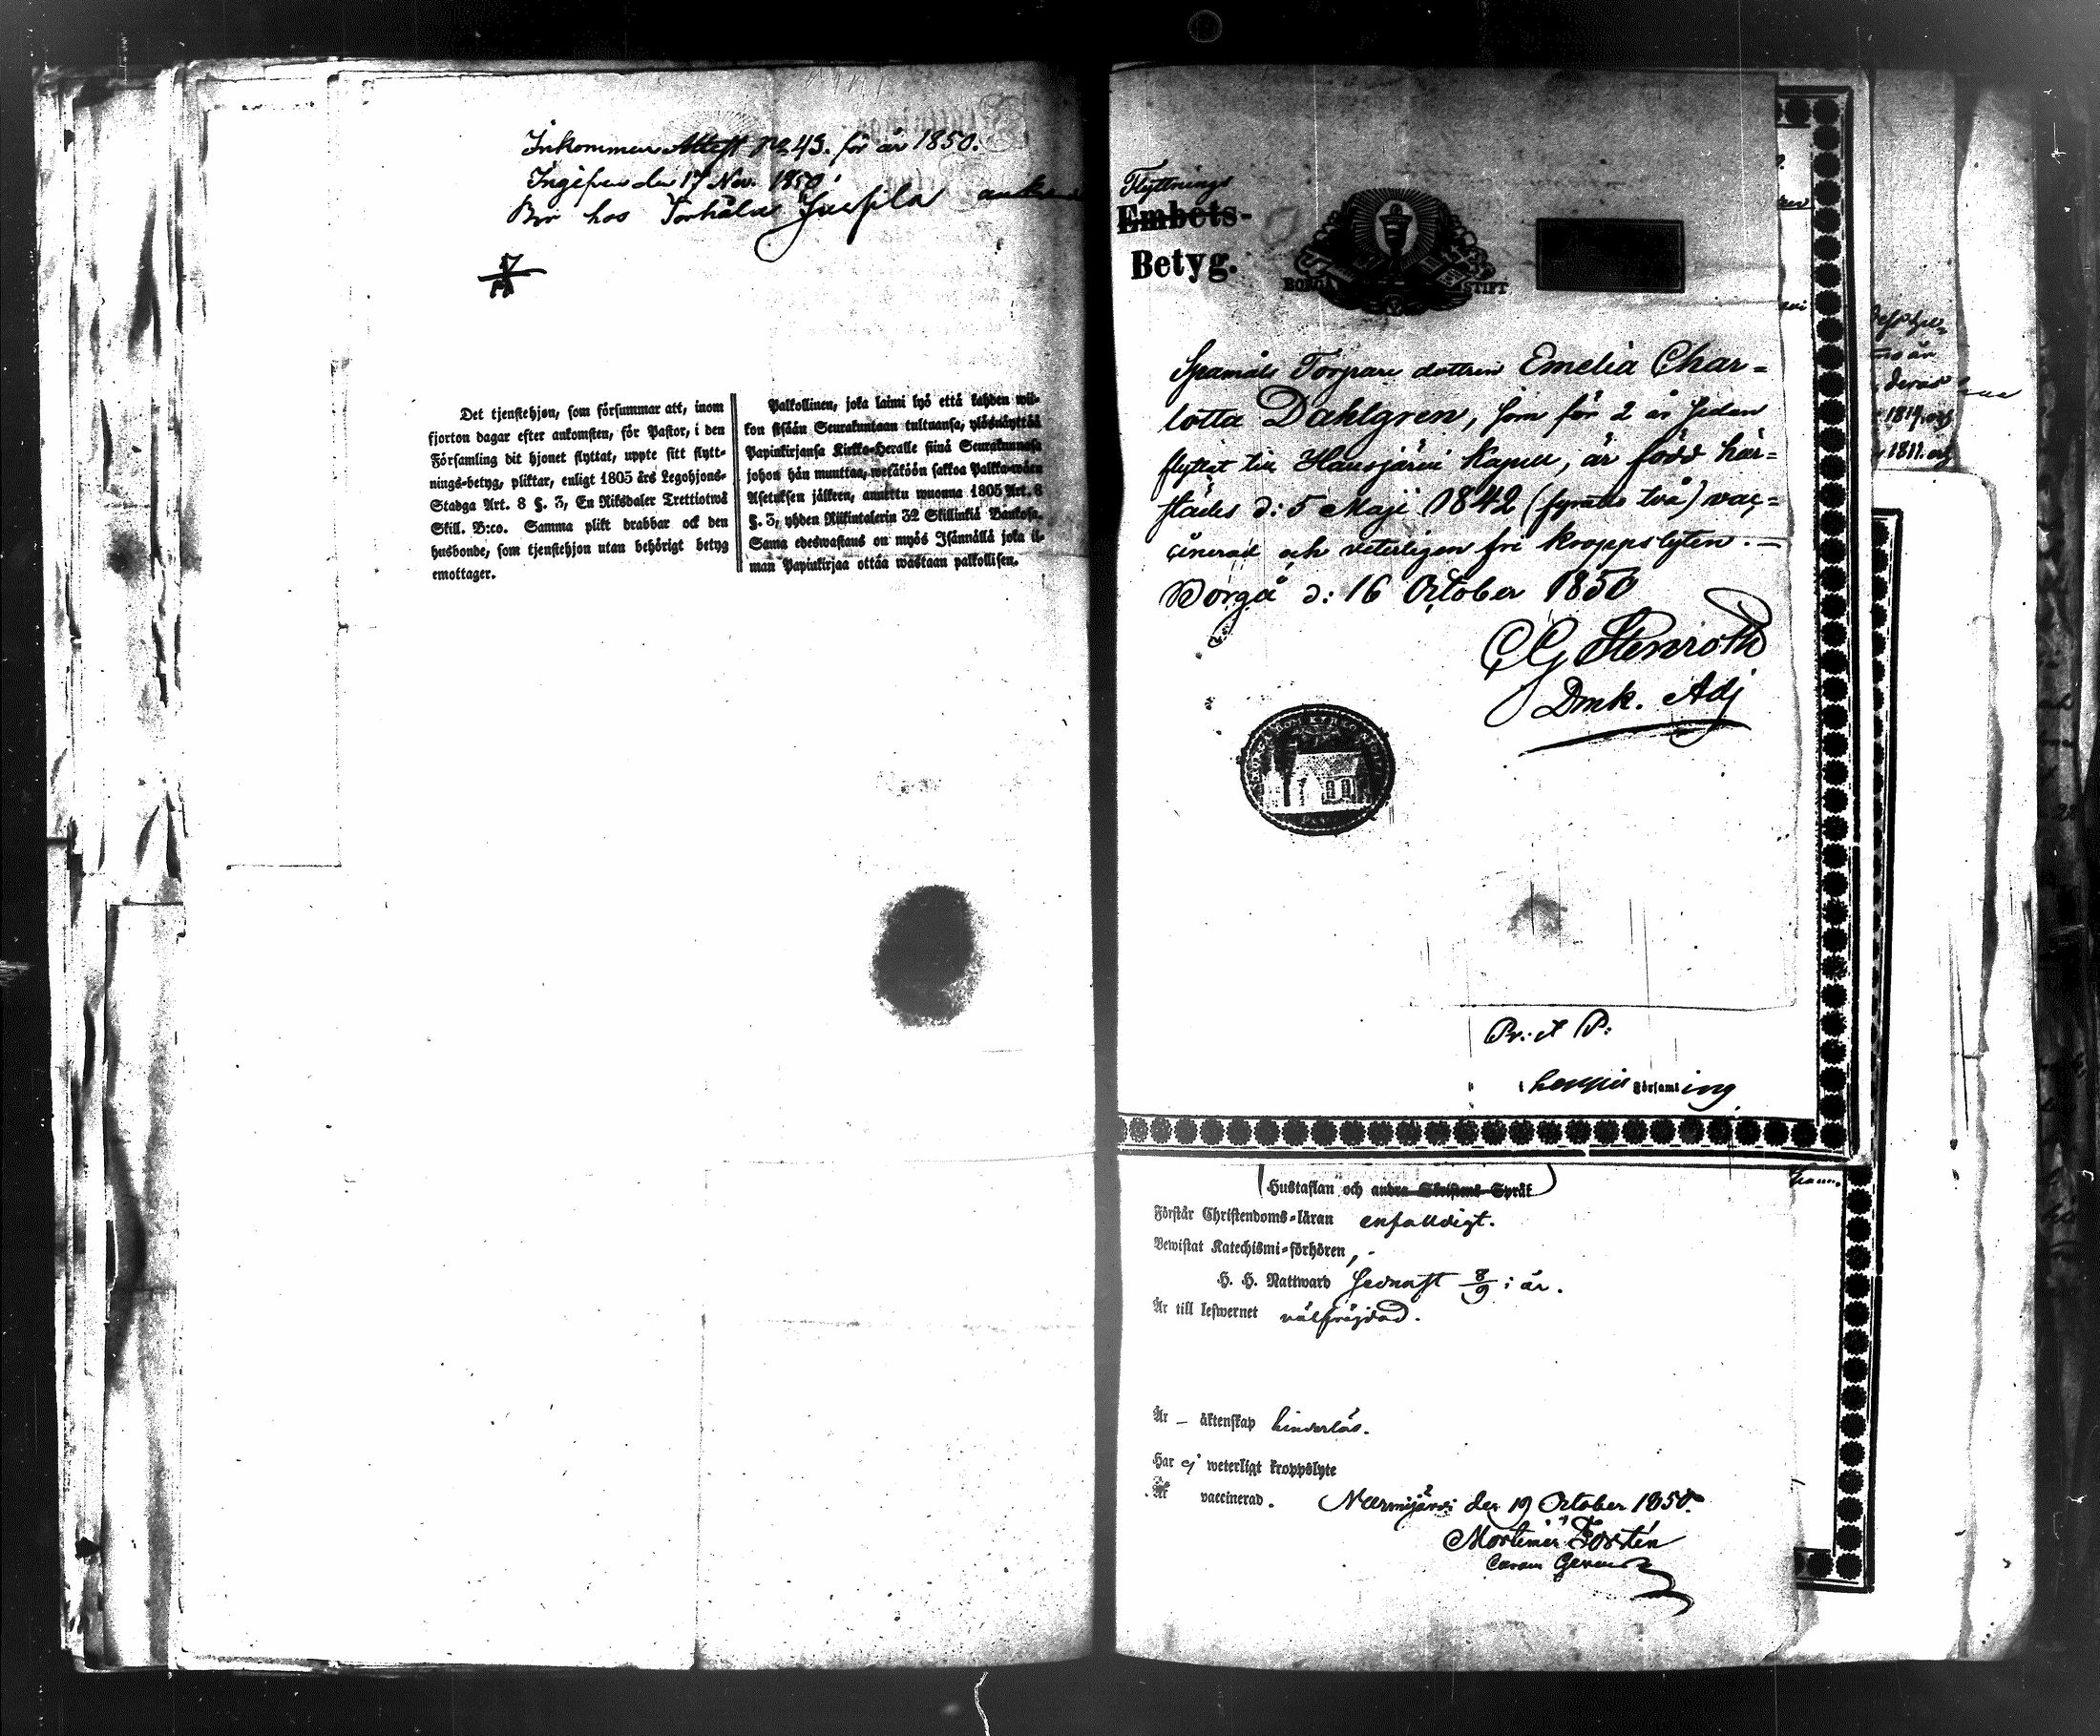 Inkommen Attest No 43. för år 1850.
Ingifven den 17 Nov. 1850
Bor hos Torhåla Jussila
Det tjenstehjon, som försummar att, inom
fjorton dagar efter ankomsten, för Pastor, i den
Församling dit hjonet flyttat, uppte sitt flytt-
nings-betyg, pliktar, enligt 1805 års Legohjons-
Stadga Art. 8 §. 3, En Riksdaler Trettiotwå
Skill. B:co. Samma plikt drabbar ock den
husbonde, som tjenstehjon utan behörigt betyg
emottager.
Palkollinen, joka laimi lyö että kahden wii-
kon sisään Seurakuntaan tultuansa, ylösnäyttää
Papinkirjansa Kirkko-Herralle siinä Seurakunnasa
johon hän muuttaa, wetäköön sakkoa Palkka-wäen
Asetuksen jälkeen, annettu wuonna 1805 Art. 8
§. 3, yhden Riikintalerin 32 Skillinkiä Bankosa.
Sama edeswastaus on myös Isännällä joka il-
man Papinkirjaa ottaa wastaan palkollisen.
Flyttnings
Embets-
Betyg.
BORGÅ STIFT
Torpare dottren Emelia Char-
lotta Dahlgren, som för 2 år sedan
flyttat till Hausjärvi Kapell, är född här-
städes d: 5 Maji 1842 (fyratio två) vac-
cinerad och veterligen fri kroppslyten. —
Borgå d: 16 October 1850
CG Stenroth
Dmk. Adj
Pr: et P:
i Loppis Församling
Hustaflan och andra Christens Språk
Förstår Christendoms-läran enfalldigt.
Bewistat Katechismi-förhören, -
H. H. Nattward sednast 8/9 i år.
Är till lefwernet välfrejdad.
Är – äktenskap hinderlös.
Har ej weterligt kroppslyte
Är vaccinerad. Nurmijärvi den 19 October 1850.
Mortimer Forstén